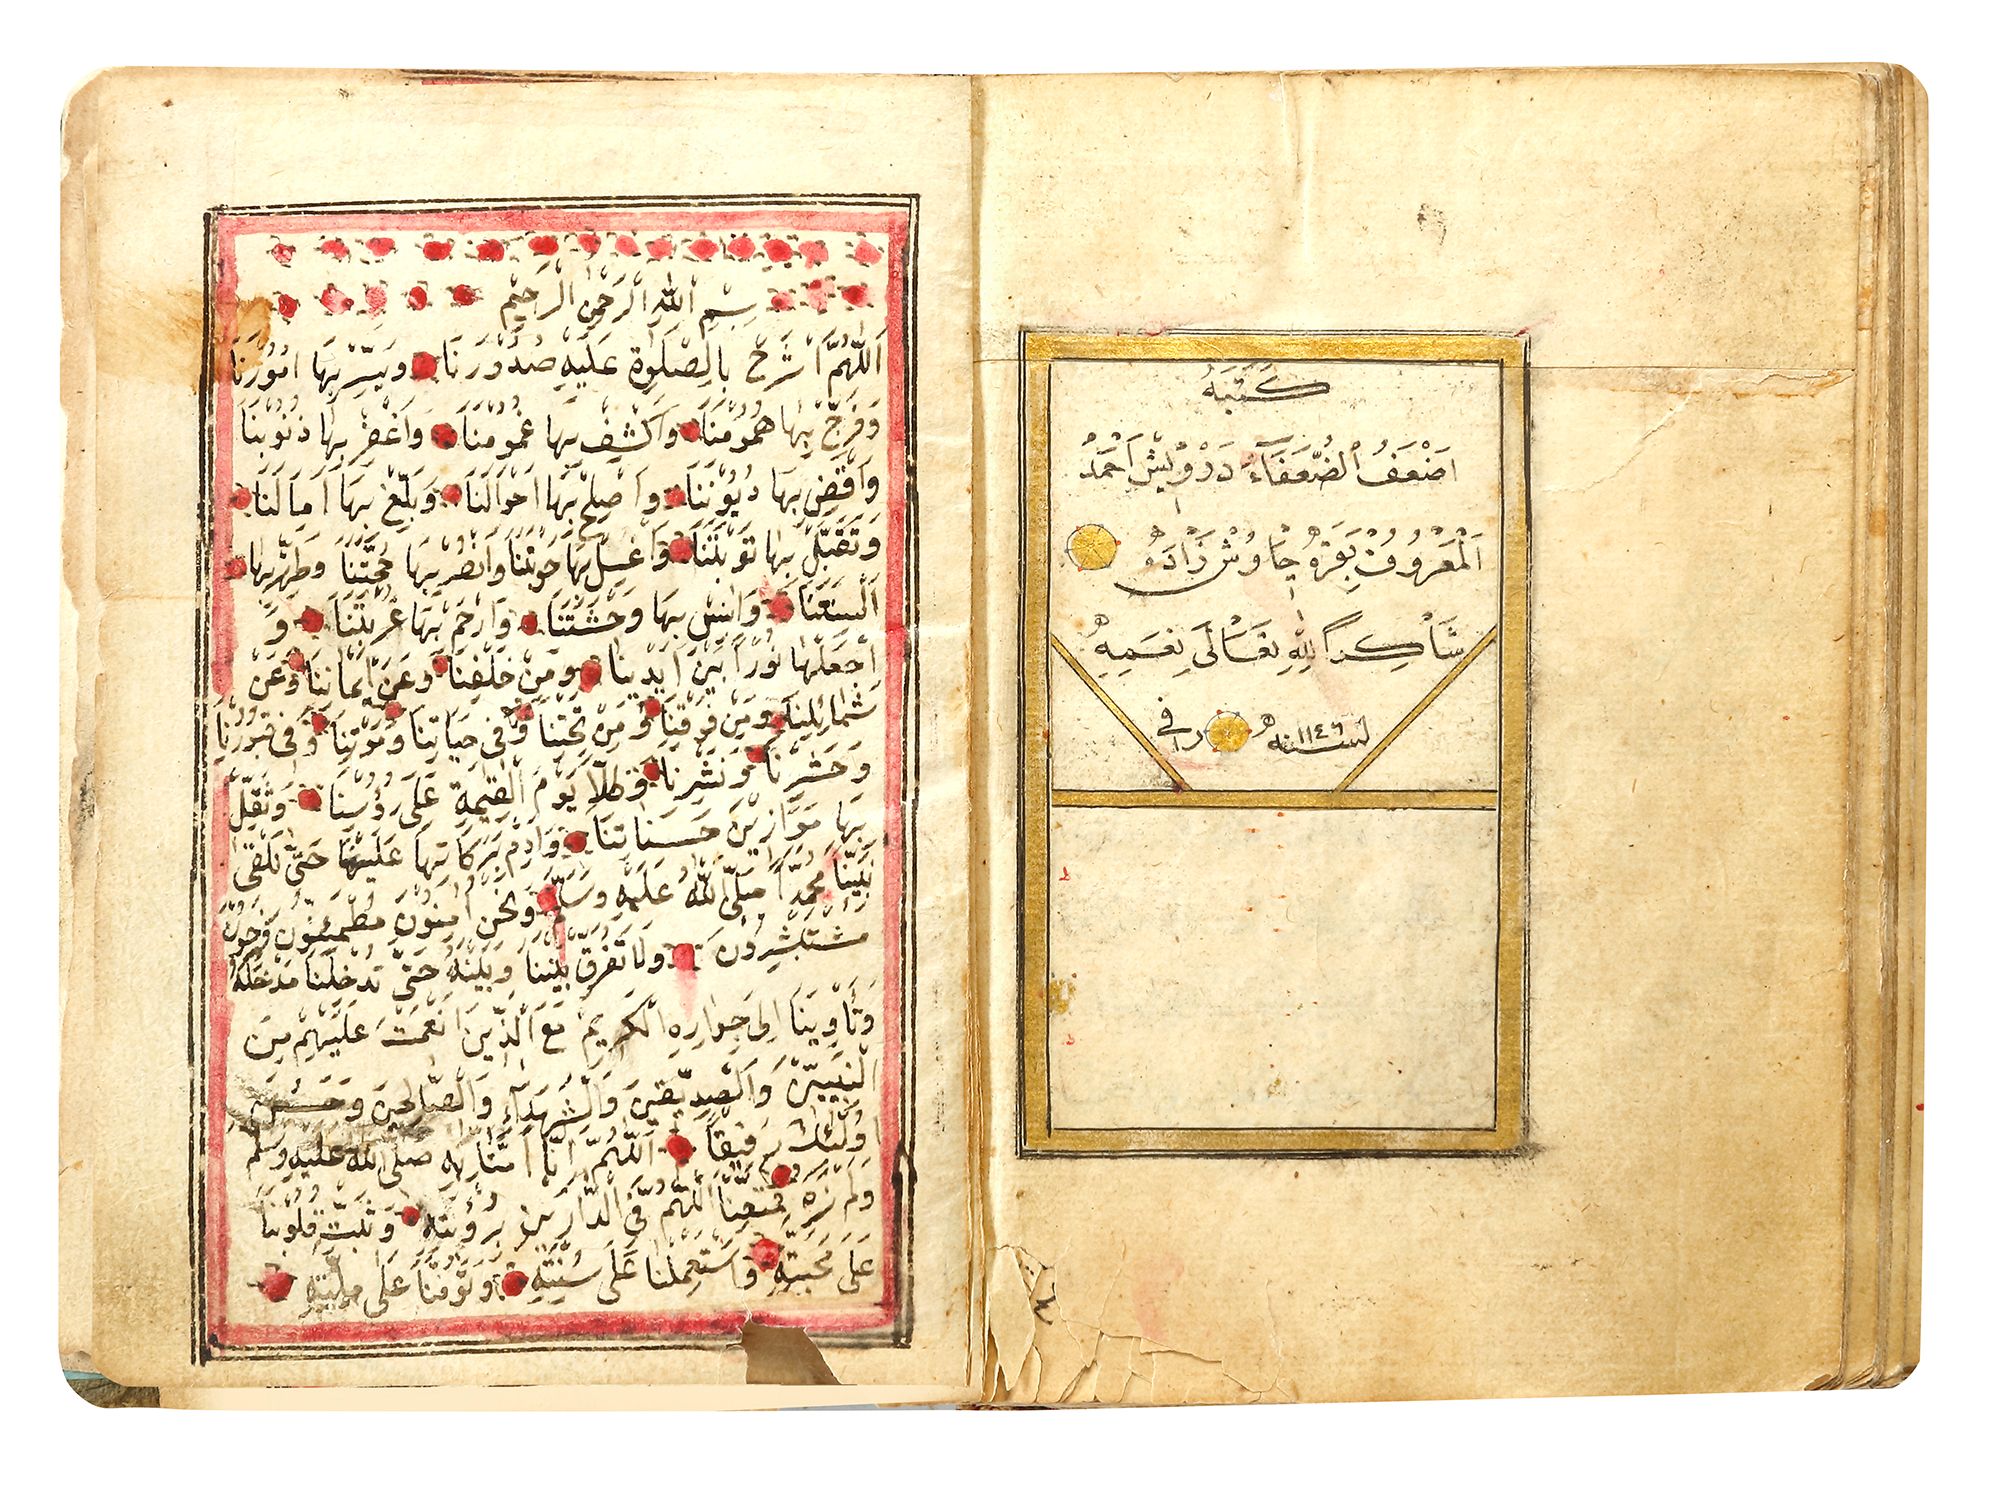 كَتَبَهُ
اَضْعَفُ الضُّعَفَاءِ دَرْوِيْش اَحْمَدْ
اَلْمَعْرُوفْ بِقَرَه چَاوُشْ زَادَه
شَاكِراً لِلّٰهِ تَعَالَى نِعَمِهِ
لسنه ١١٤٦
بِسْمِ اللّٰهِ الرَّحْمٰنِ الرَّحِيْمِ
اَللّٰهُمَّ اشْرَحْ بِالصَّلٰوةِ عَلَيْهِ صُدُوْرَنَا وَيَسِّرْ بِهَا اُمُوْرَنَا
وَفَرِّجْ بِهَا هُمُوْمَنَا وَاكْشِفْ بِهَا غُمُوْمَنَا وَاغْفِرْ بِهَا ذُنُوْبَنَا
وَاقْضِ بِهَا دُيُوْنَنَا وَاَصْلِحْ بِهَا اَحْوَالَنَا وَبَلِّغْ بِهَا اٰمَالَنَا
وَتَقَبَّلْ بِهَا تَوْبَتَنَا وَاغْسِلْ بِهَا حَوْبَتَنَا وَانْصُرْ بِهَا حُجَّتَنَا وَطَهِّرْ بِهَا
اَلْسِنَتَنَا وَاٰنِسْ بِهَا وَحْشَتَنَا وَارْحَمْ بِهَا غُرْبَتَنَا وَ
اجْعَلْهَا نُوْراً بَيْنَ اَيْدِيْنَا وَمِنْ خَلْفِنَا وَعَنْ اَيْمَانِنَا وَعَنْ
شَمَائِلِنَا وَمِنْ فَوْقِنَا وَمِنْ تَحْتِنَا وَفِي حَيَاتِنَا وَمَوْتِنَا وَفِي قُبُوْرِنَا
وَحَشْرِنَا وَنَشْرِنَا وَظِلّاً يَوْمَ الْقِيٰمَةِ عَلَى رُؤُسِنَا وَثَقِّلْ
بِهَا مَوَازِيْنَ حَسَنَاتِنَا وَاَدِمْ بَرَكَاتِهَا عَلَيْنَا حَتَّى نَلْقَى
نَبِيَّنَا مُحَمَّداً صَلَّى اللّٰهُ عَلَيْهِ وَسَلَّمَ وَنَحْنُ اٰمِنُوْنَ مُطْمَئِنُّوْنَ فَرِحُوْنَ
مُسْتَبْشِرُوْنَ وَلَا تُفَرِّقْ بَيْنَنَا وَبَيْنَهُ حَتَّى تُدْخِلَنَا مَدْخَلَهُ
وَتَأْوِيَنَا اِلَى جِوَارِهِ الْكَرِيْمِ مَعَ الَّذِيْنَ اَنْعَمْتَ عَلَيْهِمْ مِنَ
النَّبِيّيْنَ وَالصِّدِّيْقِيْنَ وَالشُّهَدَاءِ وَالصَّالِحِيْنَ وَحَسُنَ
اُولٰئِكَ رَفِيْقاً اَللّٰهُمَّ اِنَّا اٰمَنَّا بِهِ صَلَّى اللّٰهُ عَلَيْهِ وَسَلَّمَ
وَلَمْ نَرَهُ فَمَتِّعْنَا اَللّٰهُمَّ فِي الدَّارَيْنِ بِرُؤْيَتِهِ وَثَبِّتْ قُلُوْبَنَا
عَلَى مَحَبَّتِهِ وَاسْتَعْمِلْنَا عَلَى سُنَّتِهِ وَتَوَفَّنَا عَلَى مِلَّتِهِ